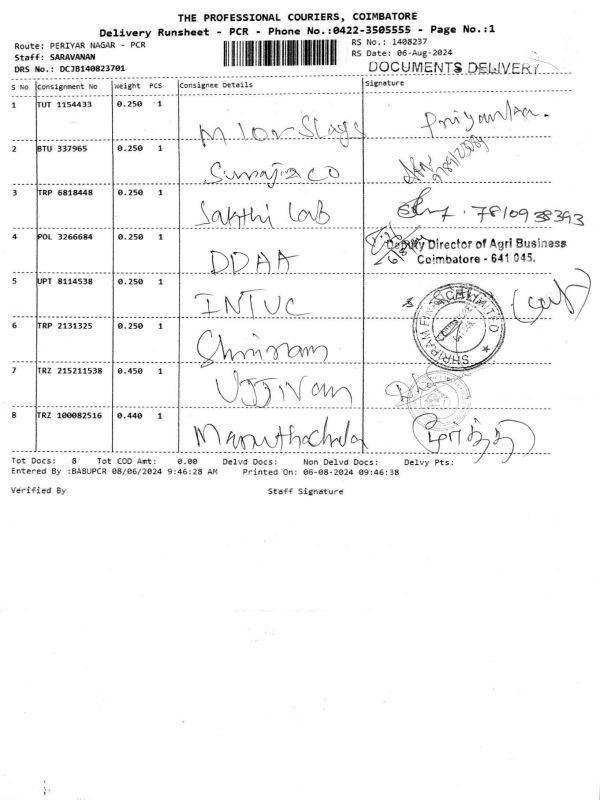 THE PROFESSIONAL COURIERS, COIMBATORE
Delivery Runsheet - PCR - Phone No.:0422-3505555 - Page No.:1
Route: PERIYAR NAGAR - PCR
RS No.: 1408237
Staff: SARAVANAN
RS Date: 06-Aug-2024
DRS No.: DCJB140823701
DOCUMENTS DELIVERY
S No Consignment No Weight PCS Consignee Details Signature
1 TUT 1154433 0.250 1 Priyanka.
2 BTU 337965 0.250 1
3 TRP 6818448 0.250 1 Sakthi Lab 7810938393
4 POL 3266684 0.250 1 DDAA
Deputy Director of Agri Business
Coimbatore - 641 045.
5 UPT 8114538 0.250 1 INTUC
SHRIRAM FINANCE LIMITED
6 TRP 2131325 0.250 1 Shriram
7 TRZ 215211538 0.450 1 Ujjivan
8 TRZ 100082516 0.440 1 Maruthachala
Tot Docs: 8 Tot COD Amt: 0.00 Delvd Docs: Non Delvd Docs: Delvy Pts:
Entered By :BABUPCR 08/06/2024 9:46:28 AM Printed On: 06-08-2024 09:46:38
Verified By Staff Signature